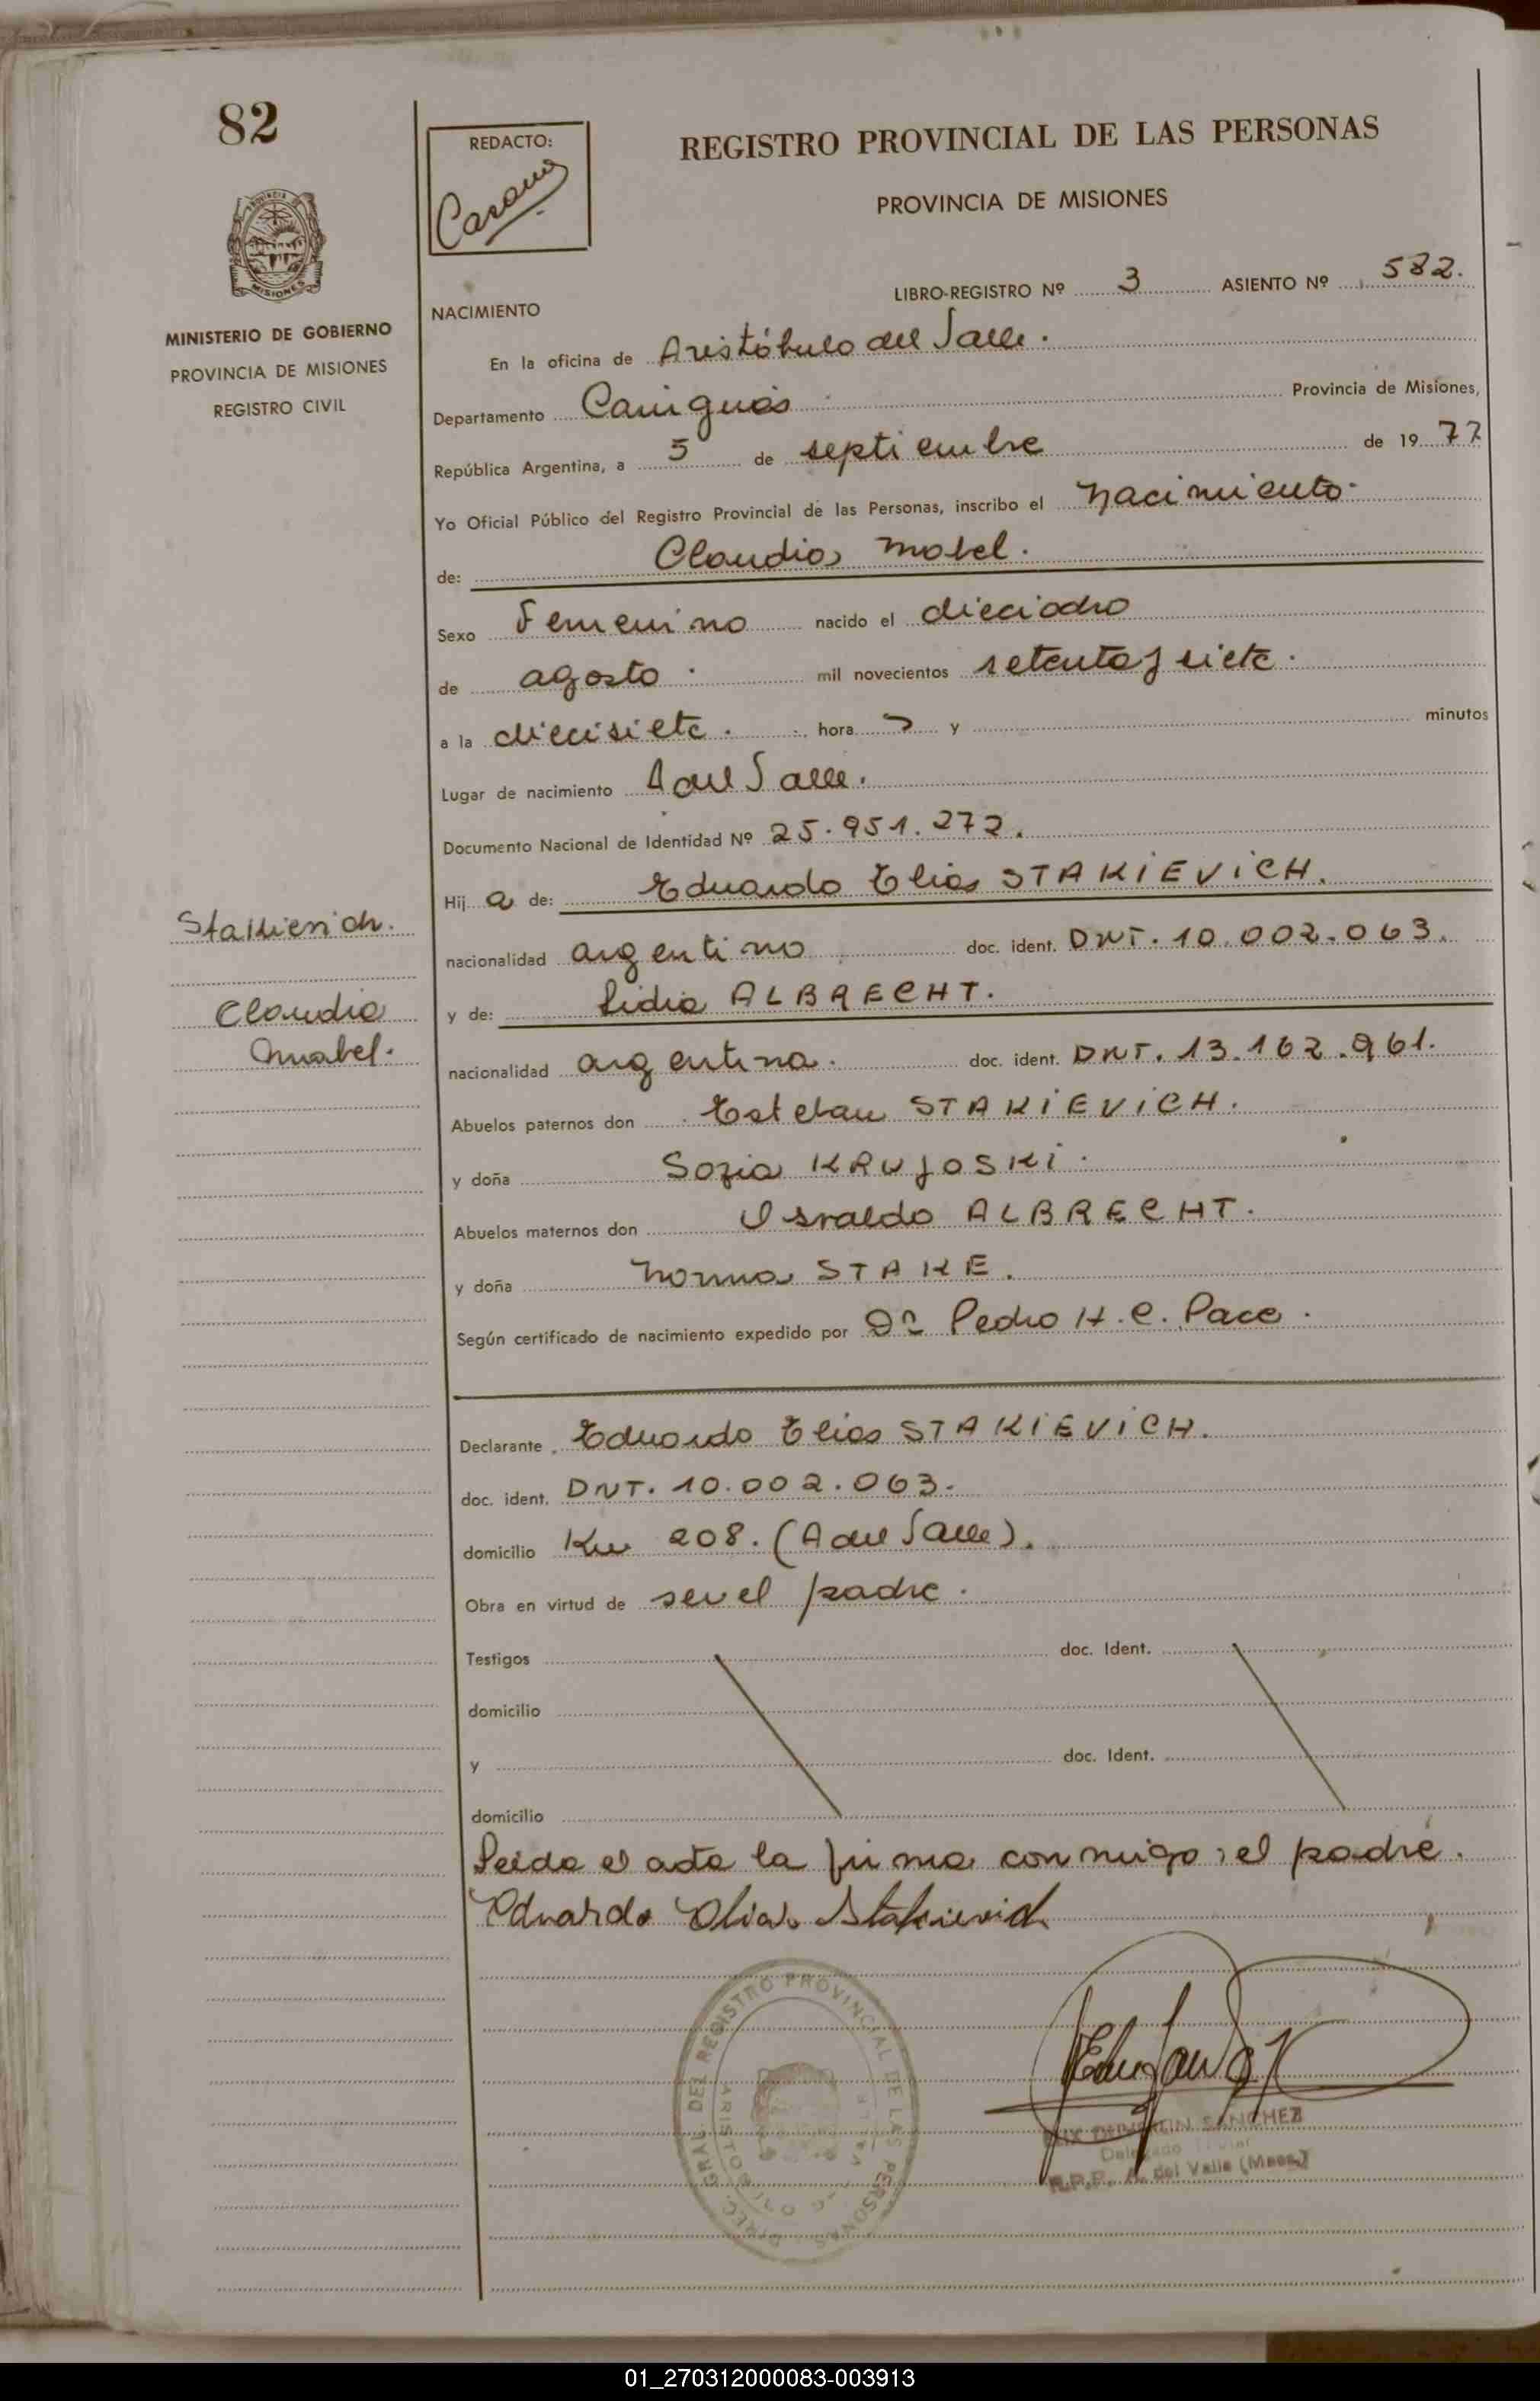 82
REDACTO:
REGISTRO PROVINCIAL DE LAS PERSONAS
PROVINCIA DE MISIONES
MISIONES
MINISTERIO DE GOBIERNO
PROVINCIA DE MISIONES
REGISTRO CIVIL
LIBRO-REGISTRO Nº 3 ASIENTO Nº 582.
NACIMIENTO
En la oficina de Aristóbulo del Valle.
Departamento Cainguás Provincia de Misiones,
República Argentina, a 5 de septiembre de 1977
Yo Oficial Público del Registro Provincial de las Personas, inscribo el nacimiento
de: Claudia Mabel.
Sexo Femenino nacido el dieciocho
de agosto mil novecientos setenta y siete.
a la diecisiete. hora s y minutos
Lugar de nacimiento A del Valle.
Documento Nacional de Identidad Nº 25.951.272.
Hij a de: Eduardo Elias STAKIEVICH.
nacionalidad argentino doc. ident. DNT. 10.002.063.
y de: Lidia ALBRECHT.
nacionalidad argentina. doc. ident. DNT. 13.162.961.
Stakievich.
Claudia
Mabel.
Abuelos paternos don Esteban STAKIEVICH.
y doña Sofia KRUJOSKI.
Abuelos maternos don Osvaldo ALBRECHT.
y doña Norma STAKE.
Según certificado de nacimiento expedido por Dr Pedro H. C. Pace.
Declarante Eduardo Elias STAKIEVICH.
doc. ident. DNT. 10.002.063.
domicilio Km 208. (A del Valle).
Obra en virtud de ser el padre.
Testigos doc. Ident.
domicilio
y doc. Ident.
domicilio
Leida el acta la firma conmigo; el padre.
Eduardo Elias Stakievich
DIREC. GRAL. DEL REGISTRO PROVINCIAL DE LAS PERSONAS
SANCHEZ
R.P.P. A. del Valle (Mnes.)
01_270312000083-003913